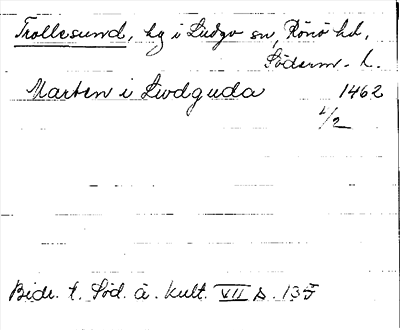 Trollesund, hg i Ludgo sn, Rönö hd,
Söderm. l.
Marten i Liwdguda 1462
1/2
Bidr. t. Söd. ä. kult. VII s. 135